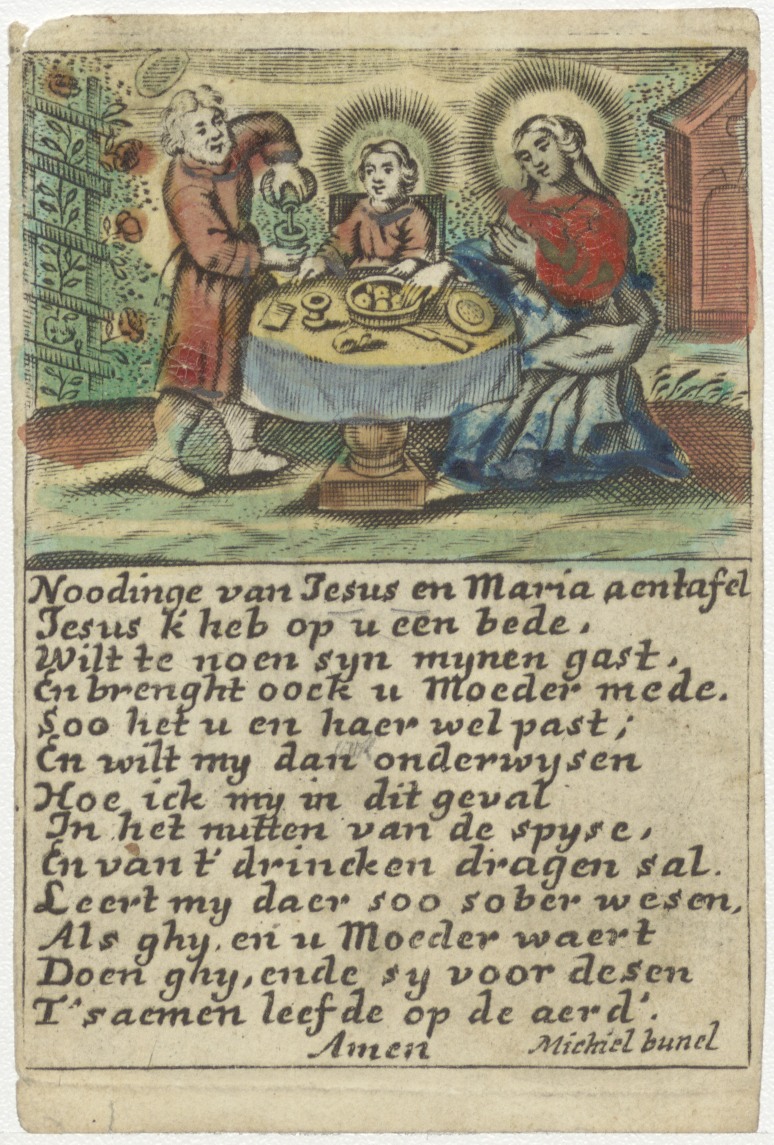 Noodinge van Jesus en Maria aentafel
Jesus k heb op u een bede,
Wilt te noen syn mynen gast,
En brenght oock u Moeder mede.
Soo het u en haer wel past;
En wilt my dan onderwysen
Hoe ick my in dit geval
In het nutten van de spyse,
En van t' drincken dragen sal.
Leert my daer soo sober wesen,
Als ghy, en u Moeder waert
Doen ghy, ende sy voor desen
T'saemen leefde op de aerd'.
Amen Michiel bunel